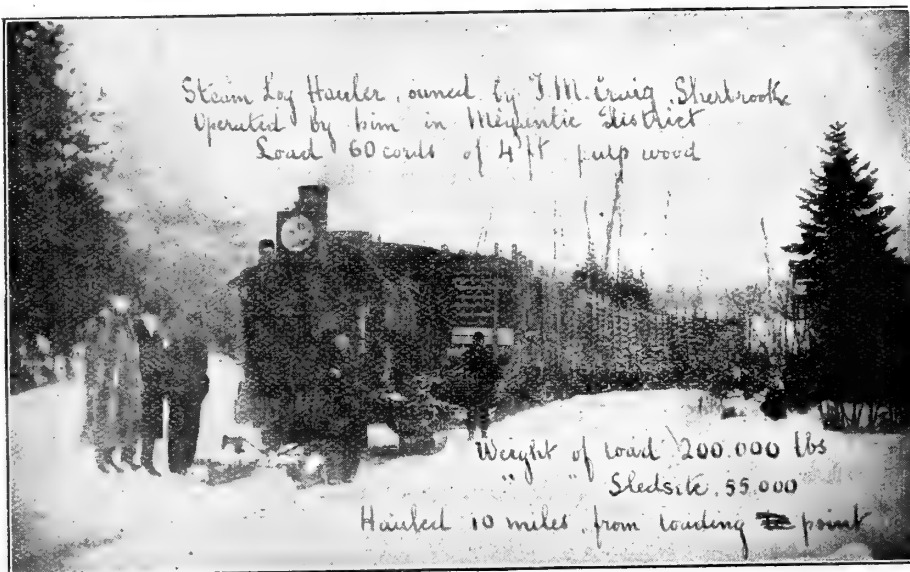 Steam Log Hauler, owned by F.M. Craig, Sherbrooke
Operated by him in Megantic District
Load 60 cords of 4 ft pulp wood
Weight of load 200.000 lbs
" " Sledsite. 55.000
Hauled 10 miles from loading point